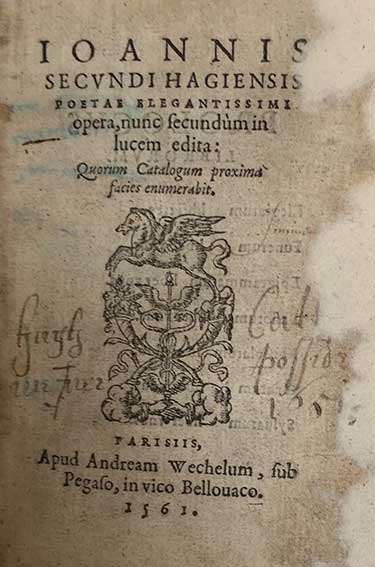 IOANNIS
SECVNDI HAGIENSIS
POETAE ELEGANTISSIMI
opera, nunc ſecundùm in
lucem edita:
Quorum Catalogum proxima
facies enumerabit.
PARISIIS,
Apud Andream Wechelum, ſub
Pegaſo, in vico Bellouaco.
1561.